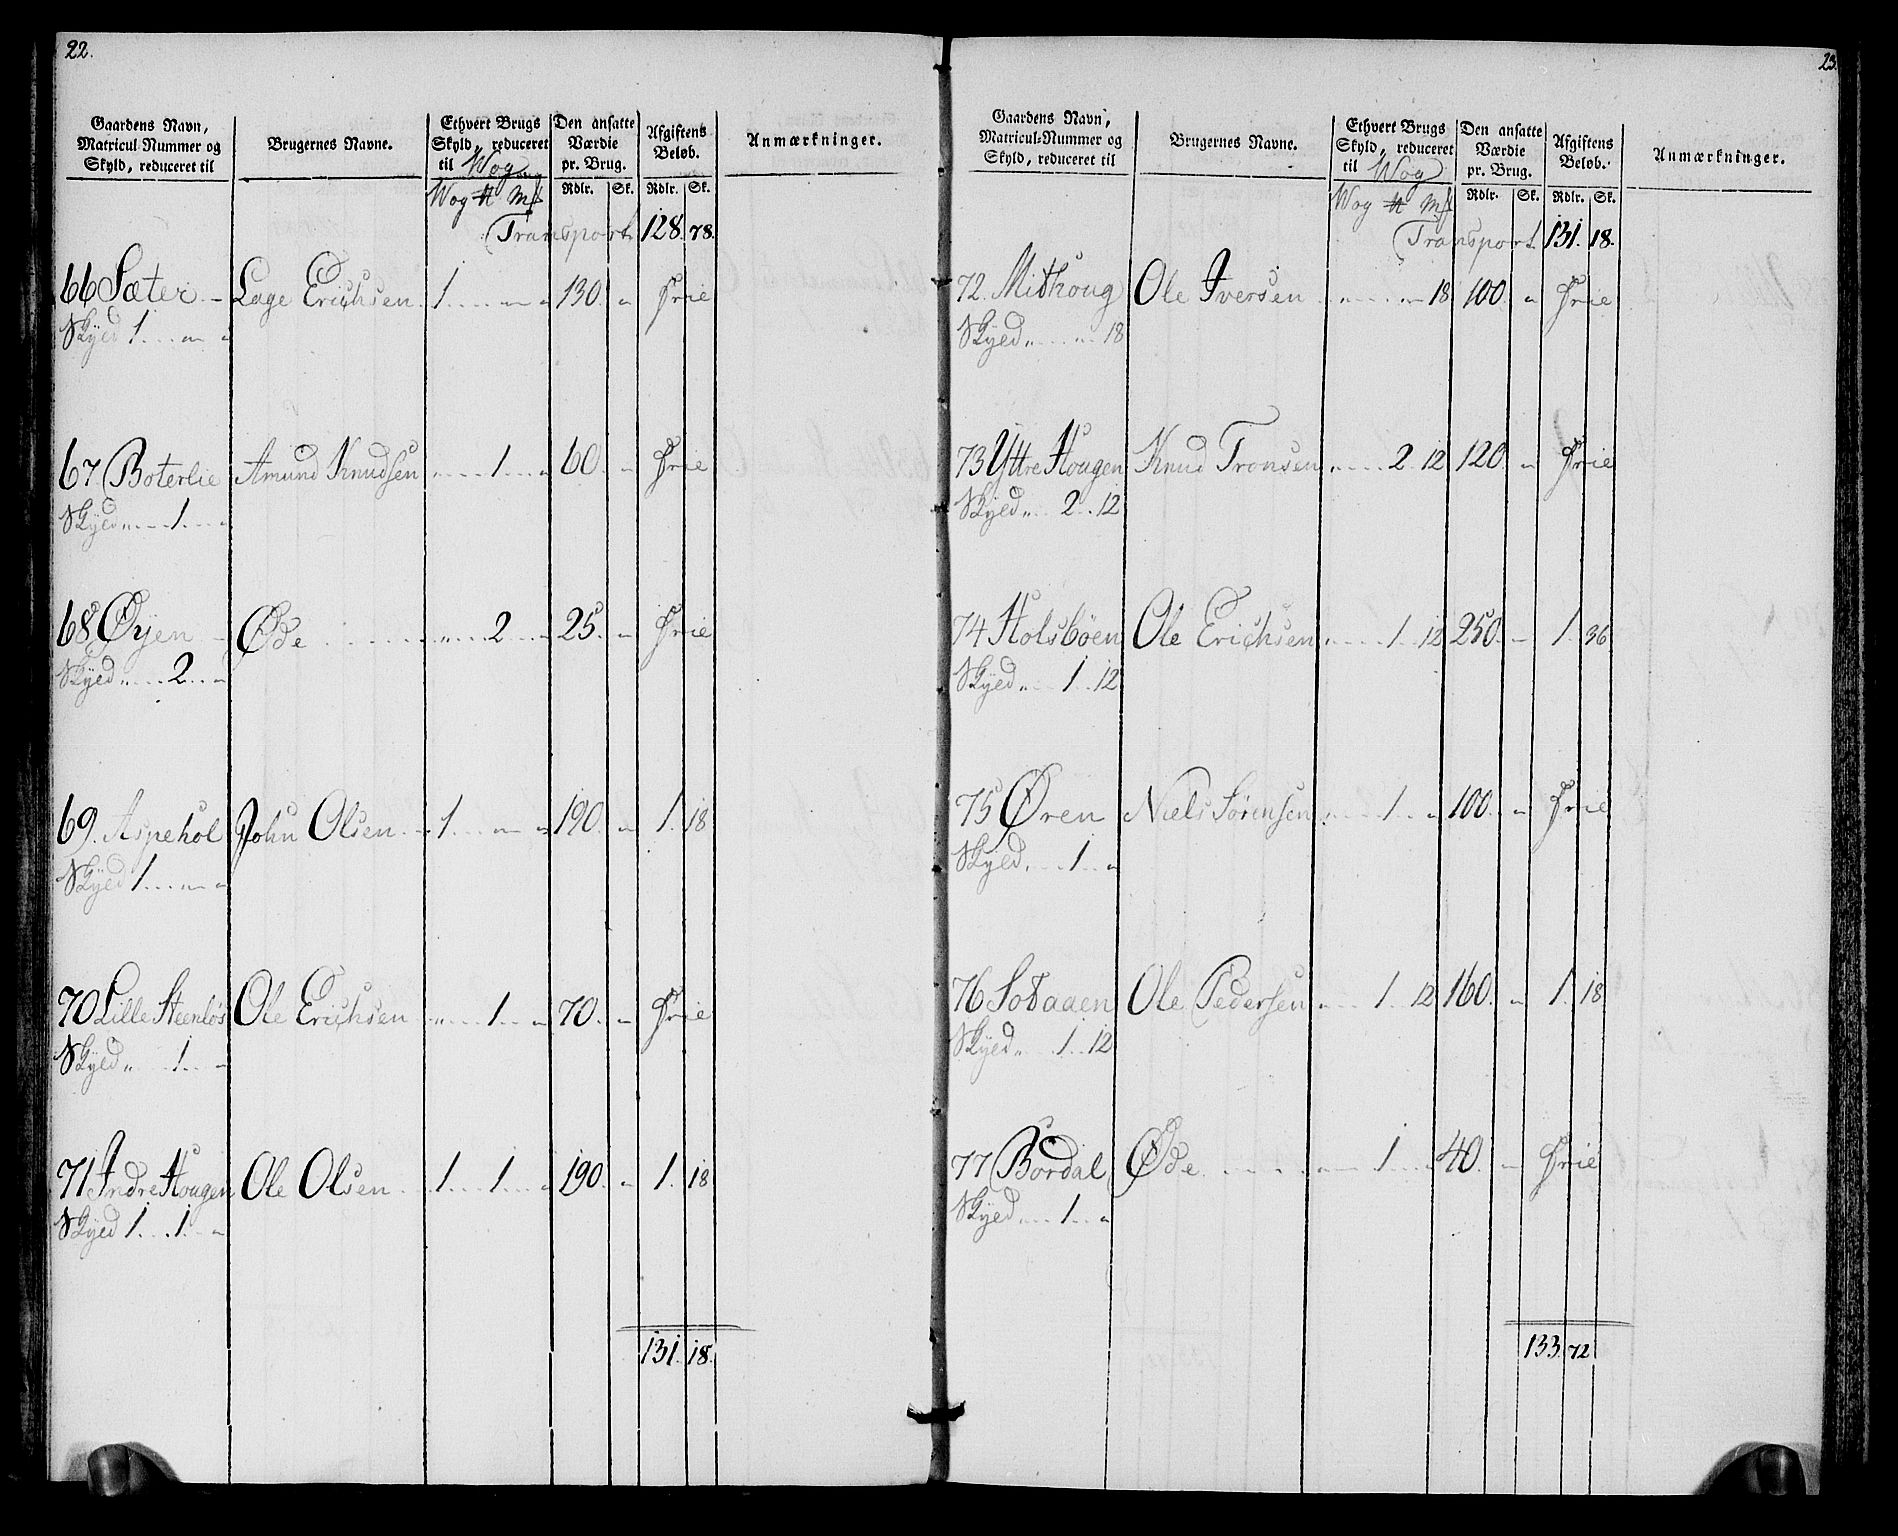 22.
Gaardens Navn, Matricul-Nummer og Skyld, reduceret til
Brugernes Navne.
Ethvert Brugs Skyld, reduceret til Wog
Den ansatte Værdie pr. Brug.
Afgiftens Beløb.
Anmærkninger.
Wog ℔ Mk Rdlr. Sk. Rdlr. Sk.
Transport 128. 78.
66 Sæter Lage Erichsen 1 „ „ 130. „ Frie
Skyld 1 „ „
67 Boterlie Amund Knudsen „ 1 „ 60. „ Frie
Skyld „ 1 „
68 Øyen Øde „ 2 „ 25. „ Frie
Skyld „ 2 „
69. Aspehol John Olsen 1 „ „ 190. „ 1. 18
Skyld 1 „ „
70 Lille Steenløs Ole Erichsen „ 1 „ 70. „ Frie
Skyld „ 1 „
71 Indre Hougen Ole Olsen 1 1 „ 190. „ 1. 18
Skyld 1 1 „
131. 18.
23.
Gaardens Navn, Matricul-Nummer og Skyld, reduceret til
Brugernes Navne.
Ethvert Brugs Skyld, reduceret til Wog
Den ansatte Værdie pr. Brug.
Afgiftens Beløb.
Anmærkninger.
Wog ℔ Mk Rdlr. Sk. Rdlr. Sk.
Transport 131. 18.
72. Mithoug Ole Iversen „ „ 18 100. „ Frie
Skyld „ „ 18
73 Yttre Hougen Knud Tronsen „ 2 12 120. „ Frie
Skyld „ 2 12
74 Holsbøen Ole Erichsen „ 1 12 250. „ 1. 36
Skyld „ 1 12
75 Øren Niels Sørensen „ 1 „ 100. „ Frie
Skyld „ 1 „
76 Sodaaen Ole Pedersen „ 1 12 160. „ 1. 18
Skyld „ 1 12
77 Bordal Øde „ 1 „ 40. „ Frie
Skyld „ 1 „
133. 72